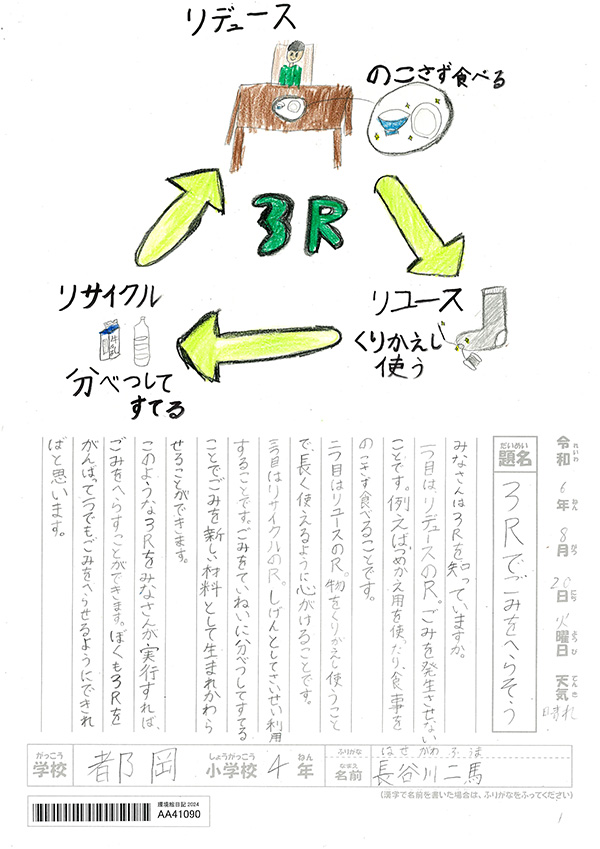 リデュース
のこさず食べる
3R
リサイクル
牛乳
分べつして
すてる
リユース
くりかえし
使う
令和6年8月20日火曜日 天気 晴れ
れいわ ねん がつ にち ようび てんき
だいめい
題名
3Rでごみをへらそう
みなさんは3Rを知っていますか。
一つ目は、リデュースのR。ごみを発生させない
ことです。例えば、つめかえ用を使ったり、食事を
のこさず食べることです。
二つ目はリユースのR。物をくりかえし使うこと
で、長く使えるように心がけることです。
三つ目はリサイクルのR。しげんとしてさいせい利用
することです。ごみをていねいに分べつしてすてる
ことでごみを新しい材料として生まれかわら
せることができます。
このような3Rをみなさんが実行すれば、
ごみをへらすことができます。ぼくも3Rを
がんばって一つでもごみをへらせるようにできれ
ばと思います。
がっこう しょうがっこう ねん
学校 都岡 小学校 4年
ふりがな はせがわ ふうま
なまえ
名前 長谷川二馬
(漢字で名前を書いた場合は、ふりがなをふってください)
環境絵日記2024
AA41090